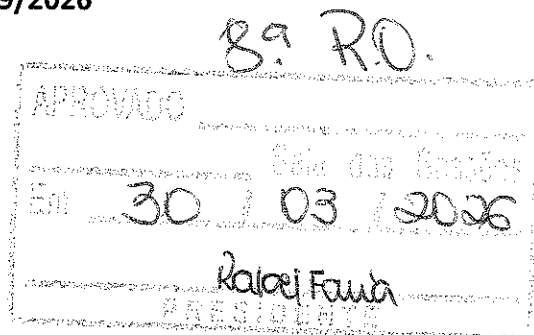 9/2026
8ª R.O.
APROVADO
Sala das Sessões
Em 30 / 03 / 2026
Rafael Faria
PRESIDENTE